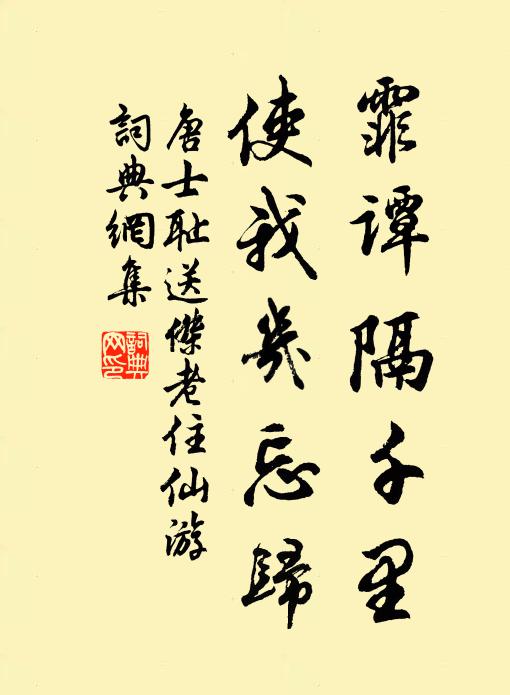 霏谭隔千里
使我幾忘歸
唐士耻送傑老住仙游
詞典網集
詞典
网印